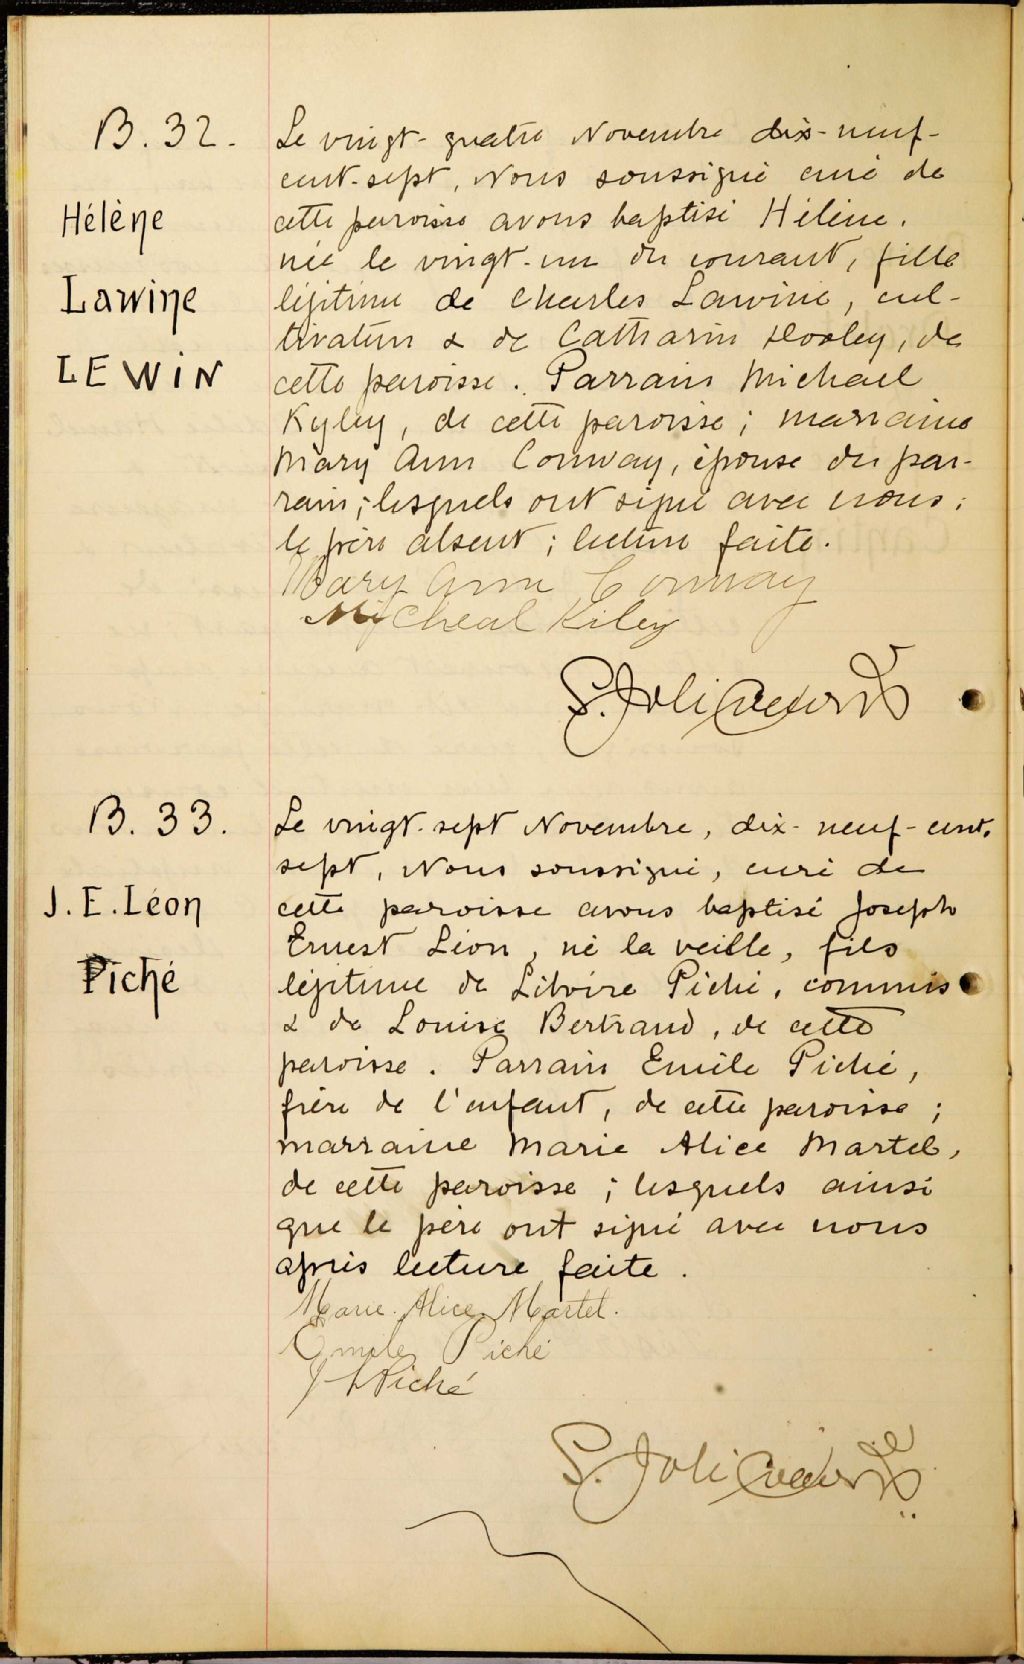 B. 32.
Hélène
Lawine
LEWIN
Le vingt-quatre Novembre dix-neuf-
cent-sept, Nous soussigné curé de
cette paroisse avons baptisé Hélène,
née le vingt-un du courant, fille
légitime de Charles Lawine, cul-
tivateur & de Catharin Dooley, de
cette paroisse. Parrain Michael
Kyley, de cette paroisse; marraine
Mary Ann Conway, épouse du par-
rain; lesquels ont signé avec nous;
le père absent; lecture faite.
Mary Ann Conway
Micheal Kiley
S. Joli
B. 33.
J. E. Léon
Piché
Le vingt-sept Novembre, dix-neuf-cent-
sept, Nous soussigné, curé de
cette paroisse avons baptisé Joseph
Ernest Léon, né la veille, fils
légitime de Piché, commis
& de Louise Bertrand, de cette
paroisse. Parrain Emile Piché,
frère de l'enfant, de cette paroisse;
marraine Marie Alice Martel,
de cette paroisse; lesquels ainsi
que le père ont signé avec nous
après lecture faite.
Marie-Alice Martel.
Emile Piché
Piché
S. Joli